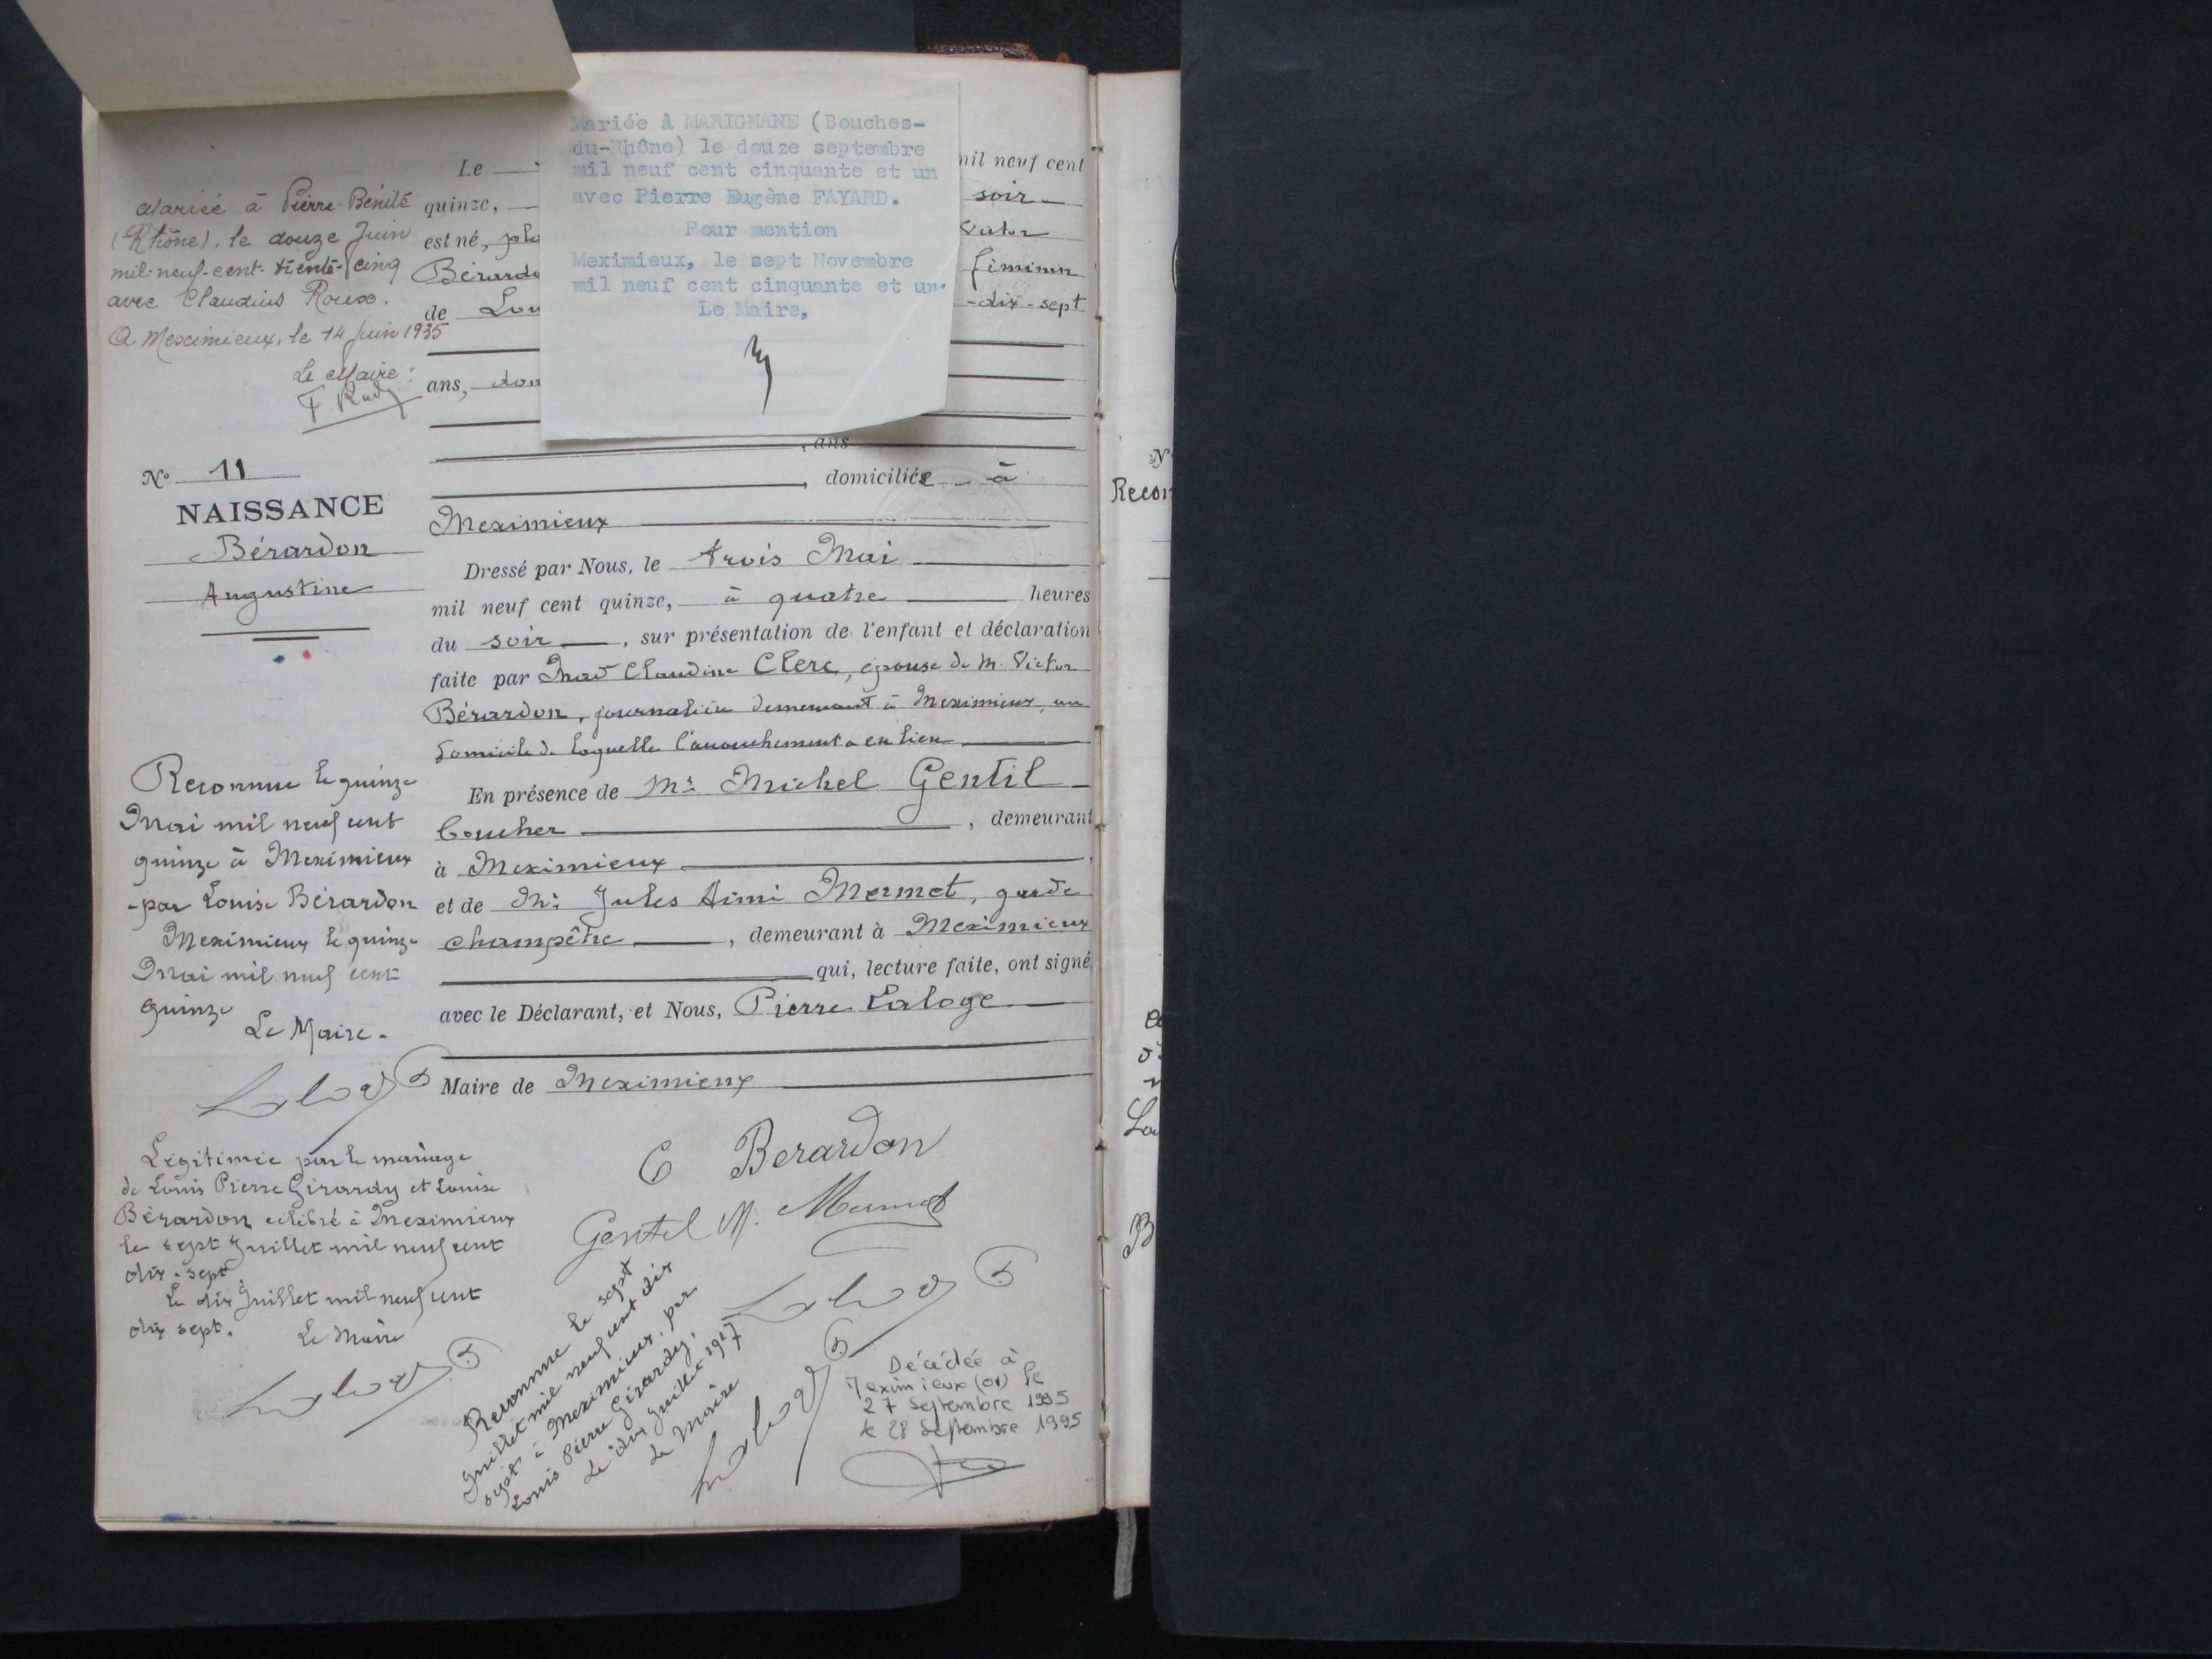 Mariée à MARIGNANE (Bouches-
du-Rhône) le douze septembre
mil neuf cent cinquante et un
avec Pierre Eugène FAYARD.
Pour mention
Meximieux, le sept Novembre
mil neuf cent cinquante et un.
Le Maire,
Mariée à Pierre-Bénite
(Rhône), le douze Juin
mil-neuf-cent-trente-cinq
avec Claudius Roux.
A Meximieux, le 14 Juin 1935
Le Maire :
Le
mil neuf cent
quinze, soir
est né, Victor
Bérardo féminin
de Lou -dix-sept
ans, dom
, ans
, domiciliée à
Meximieux
N° 11
NAISSANCE
Bérardon
Augustine
Dressé par Nous, le trois Mai
mil neuf cent quinze, à quatre heures
du soir, sur présentation de l'enfant et déclaration
faite par Mad Claudine Clerc, épouse de M. Victor
Bérardon, journalière demeurant à Meximieux, au
domicile de laquelle l'accouchement a eu lieu
En présence de Mr Michel Gentil
boucher, demeurant
à Meximieux,
et de Mr Jules Aimé Mermet, garde
champêtre, demeurant à Meximieux
qui, lecture faite, ont signé
avec le Déclarant, et Nous, Pierre Laloge
Maire de Meximieux
Reconnue le quinze
Mai mil neuf cent
quinze à Meximieux
par Louise Bérardon
Meximieux le quinze
Mai mil neuf cent
quinze
Le Maire.
Légitimée par le mariage
de Louis Pierre Girardy et Louise
Bérardon célébré à Meximieux
le sept Juillet mil neuf cent
dix-sept
Le dix Juillet mil neuf cent
dix sept.
Le Maire
C Berardon
Gentil M. Mermet
Reconnue le sept
Juillet mil neuf cent dix
sept à Meximieux, par
Louis Pierre Girardy.
Le dix Juillet 1917
Le Maire
Décédée à
Meximieux (01) le
27 Septembre 1995
le 28 Septembre 1995
N°
Recon
La
B